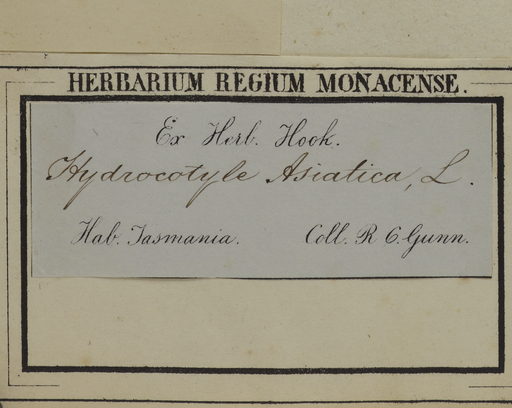 HERBARIUM REGIUM MONACENSE.
Ex Herb. Hook.
Hydrocotyle Asiatica, L.
Hab. Tasmania. Coll. R C. Gunn.